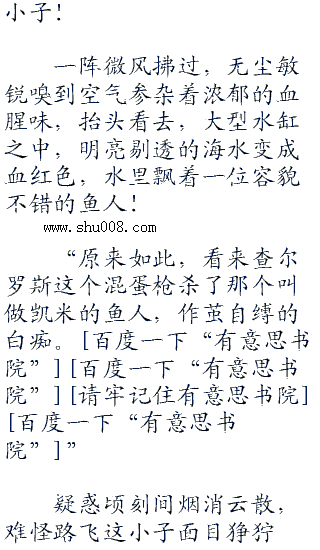 小子！
一阵微风拂过，无尘敏
锐嗅到空气参杂着浓郁的血
腥味，抬头看去，大型水缸
之中，明亮剔透的海水变成
血红色，水里飘着一位容貌
不错的鱼人！
www.shu008.com
“原来如此，看来查尔
罗斯这个混蛋枪杀了那个叫
做凯米的鱼人，作茧自缚的
白痴。[百度一下“有意思书
院”][百度一下“有意思书
院”][请牢记住有意思书院]
[百度一下“有意思书
院”]”
疑惑顷刻间烟消云散，
难怪路飞这小子面目狰狞